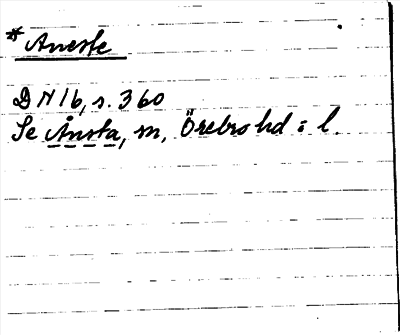 * Aneste
DN 16, s. 360
Se Ånsta, sn, Örebro hd : l.